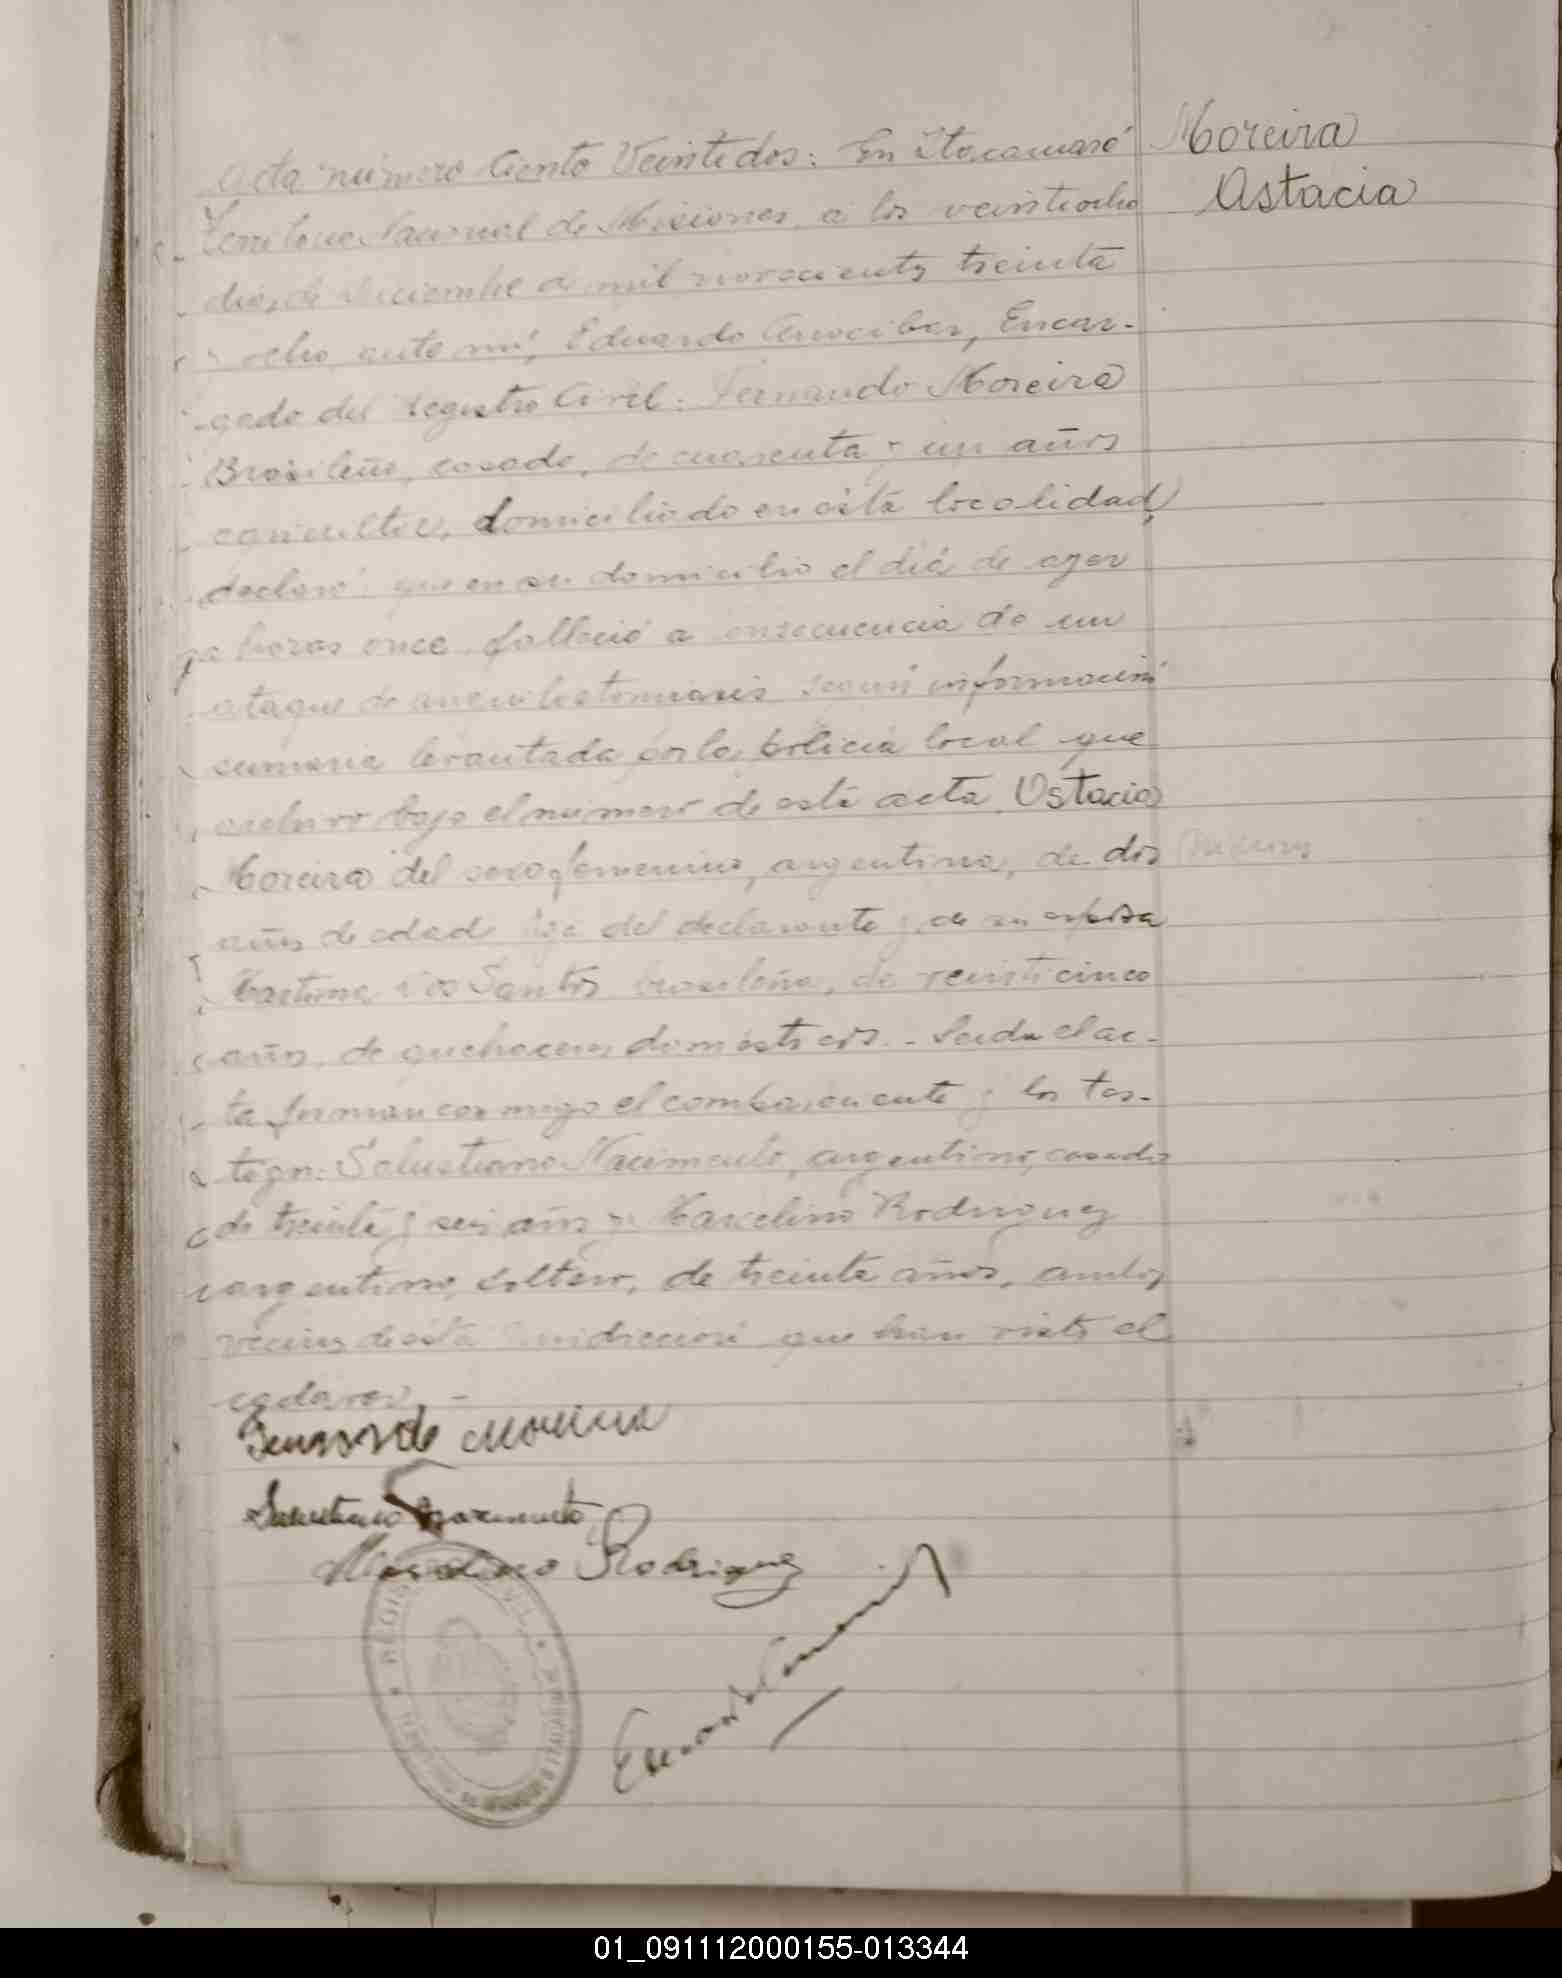 Moreira
Astacia
Acta número Ciento Veintedos: En Itacaruaré
Territorio Nacional de Misiones, a los veintiocho
dias de Diciembre de mil novecientos treinta
y ocho, ante mí, Eduardo Encar-
gado del Registro Civil: Fernando Moreira
Brasileño, casado, de cuarenta y un años
agricultor, domiciliado en esta localidad,
declaró: que en su domicilio el diá de ayer
a horas once, falleció a consecuencia de un
ataque de anquilostomiasis según información
sumaria levantada por la policia local que
archivo bajo el número de esta acta, Ostacia
Moreira del sexo femenino, argentina, de dos
años de edad hija del declarante y de su esposa
dos Santos brasileña, de veinticinco
años, de quehaceres domésticos. - Leida el ac-
ta firman conmigo el compareciente y los tes-
tigos: Salustiano Nacimento, argentino, casado
de treinta y seis años y Marcelino Rodriguez
argentino, soltero, de treinta años, ambos
vecinos de esta jurisdicción que han visto el
cadaver. -
Fernando Moreira
Salustiano Nacimento
Marcelino Rodriguez
01_091112000155-013344